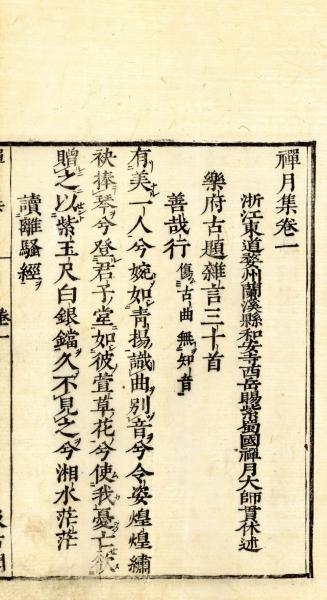 禪月集卷一
浙江東道婺州蘭溪縣和安寺西岳賜紫蜀國禪月大師貫休述
樂府古題雜言三十首
善哉行 傷古曲無知音
有美一人兮婉如青揚識曲別音兮令姿煌煌繡
袂捧琴兮登君子堂如彼萱草花兮使我憂亡欲
贈之以紫玉尺白銀鐺久不見之兮湘水茫茫
讀離騷經
卷一